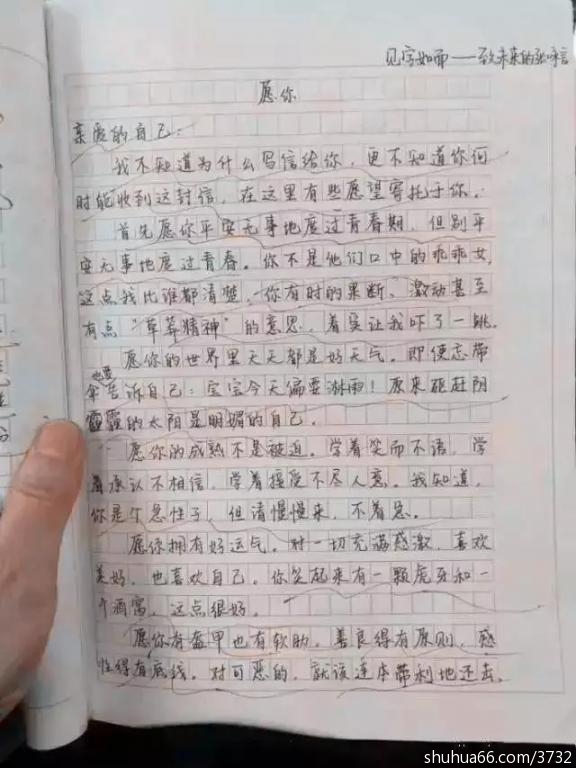 见字如面——致未来的张
愿你
亲爱的自己：
我不知道为什么写信给你，更不知道你何
时能收到这封信，在这里有些愿望寄托于你。
首先愿你平安无事地度过青春期，但别平
安无事地度过青春。你不是他们口中的乖乖女，
这点我比谁都清楚，你有时的果断、激动甚至
有点“草莽精神”的意思，着实让我吓了一跳。
愿你的世界里天天都是好天气。即使忘带
伞也要告诉自己：宝宝今天偏要淋雨！原来驱赶阴
霾的太阳是明媚的自己。
愿你的成熟不是被迫。学着笑而不语，学
着承认不相信，学着接受不尽人意。我知道，
你是个急性子，但请慢慢来，不着急。
愿你拥有好运气。对一切充满感激，喜欢
美好，也喜欢自己。你笑起来有一颗虎牙和一
个酒窝，这点很好。
愿你有盔甲也有软肋。善良得有原则，感
性得有底线。对可恶的，就该连本带利地还击。
shuhua66.com/3732